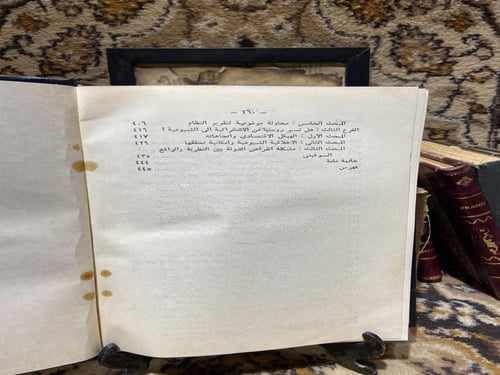 — ٤٦٠ —
المبحث الخامس : محاولة موضوعية لتقويم النظام ٤٠٦
الفرع الثالث : هل تسير روسيا من الاشتراكية الى الشيوعية ؟ ٤١٦
المبحث الأول : الهيكل الاقتصادى واتجاهاته ٤١٧
المبحث الثانى : الاخلاقية الشيوعية وامكانية تحققها ٤٢٩
المبحث الثالث : مشكلة انقراض الدولة بين النظرية والواقع
السوفيتى ٤٣٥
خاتمة عامة ٤٤٤
فهرس ٤٤٥